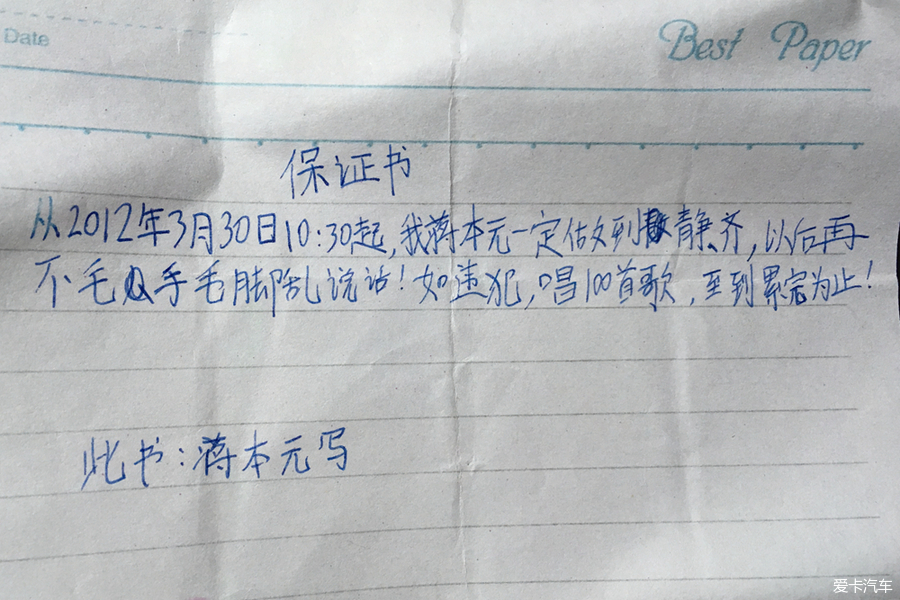 Date
Best Paper
保证书
从2012年3月30日10:30起,我蒋本元一定估文到静、齐,以后再
不毛手毛脚乱说话!如违犯,唱100首歌,至到累完为止!
此书:蒋本元写
爱卡汽车